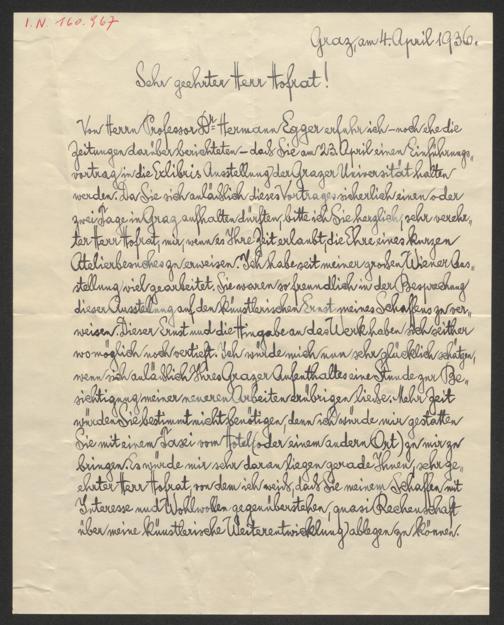 I.N. 160.967
Graz, am 4. April 1936.
Sehr geehrter Herr Hofrat!
Von Herrn Professor Dr. Hermann Egger erfuhr ich – noch ehe die
Zeitungen darüber berichteten – daß Sie am 23. April einen Einführungs„
vortrag in die Exlibris Ausstellung der Grazer Universität halten
werden. Da Sie sich anläßlich dieses Vortrages sicherlich einen oder
zwei Tage in Graz aufhalten dürften, bitte ich Sie herzlich, sehr verehr„
ter Herr Hofrat, mir, wenn es Ihre Zeit erlaubt, die Ehre eines kurzen
Atelierbesuches zu erweisen. Ich habe seit meiner großen Wiener Aus„
stellung viel gearbeitet. Sie waren so freundlich in der Besprechung
dieser Ausstellung auf den künstlerischen Ernst meines Schaffens zu ver„
weisen. Dieser Ernst und die Hingabe an das Werk haben sich seither
womöglich noch vertieft. Ich würde mich nun sehr glücklich schätzen,
wenn sich anläßlich Ihres Grazer Aufenthaltes eine Stunde zur Be„
sichtigung meiner neueren Arbeiten erübrigen ließe. Mehr Zeit
würden Sie bestimmt nicht benötigen, denn ich würde mir gestatten
Sie mit einem Taxi vom Hotel (oder einem andern Ort) zu mir zu
bringen. Es würde mir sehr daran liegen gerade Ihnen, sehr ge„
ehrter Herr Hofrat von dem ich weiß, daß Sie meinem Schaffen mit
Interesse und Wohlwollen gegenüberstehen, quasi Rechenschaft
über meine künstlerische Weiterentwicklung ablegen zu können.